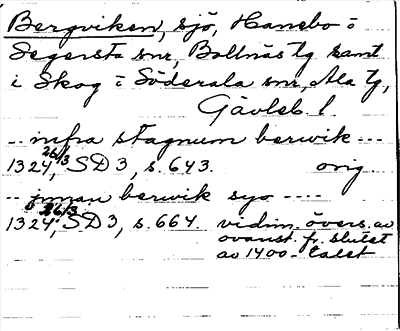 Bergviken, sjö, Hanebo o
Segersta snr, Bollnäs tg samt
i Skog o Söderala snr, Ala tg,
Gävleb. l.
-- infra stagnum berwik ---
1324 26/3, SD 3, s. 643. orig.
-- jnnan berwik syo ----
1324 26/3, SD 3, s. 664. vidim. övers. av
ovanst. fr. slutet
av 1400-talet